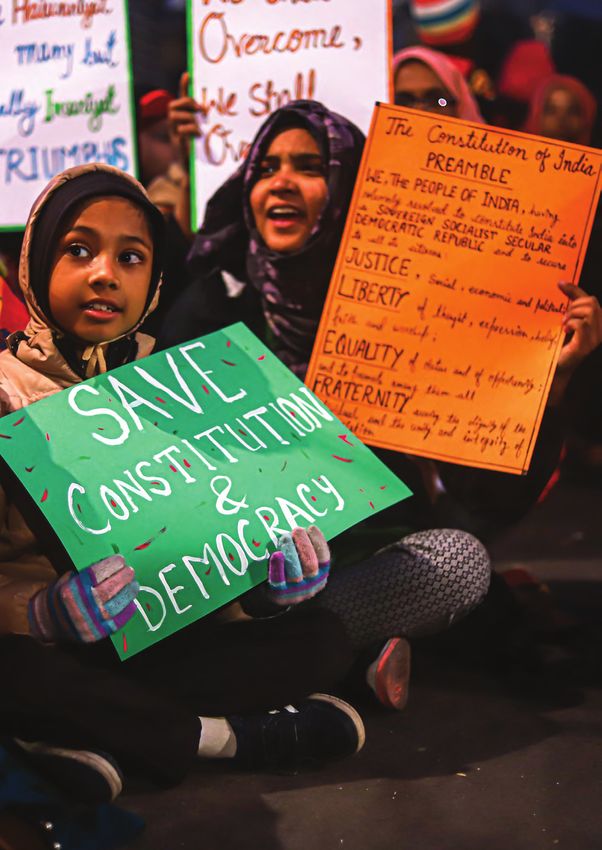 many but
TRIUMPHS
Overcome,
We Shall
The Constitution of India
PREAMBLE
WE, THE PEOPLE OF INDIA, having
solemnly resolved to constitute India into
a SOVEREIGN SOCIALIST SECULAR
DEMOCRATIC REPUBLIC and to secure
to all its citizens:
JUSTICE, Social, economic and political
LIBERTY of thought, expression, belief,
faith and worship;
EQUALITY of status and of opportunity;
and to promote among them all
FRATERNITY assuring the dignity of the
and the unity and integrity of
SAVE
CONSTITUTION
&
DEMOCRACY